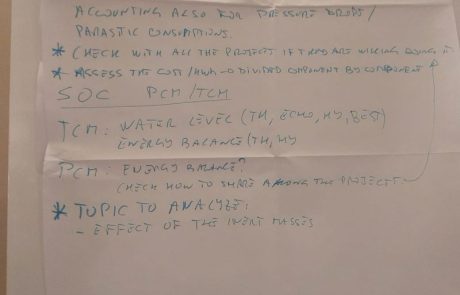 ACCOUNTING ALSO FOR PRESSURE DROPS/
PARASTIC CONSUMPTIONS.
* CHECK WITH ALL THE PROJECTS IF THEY ARE WILLING DOING IT
* ASSESS THE COST/KWH → DIVIDED COMPONENT BY COMPONENT
SOC PCM/TCM
TCM: WATER LEVEL (TH, ECHO, HY, BEST)
ENERGY BALANCE (TH, HY
PCM: ENERGY BALANCE?
CHECK HOW TO SHARE AMONG THE PROJECTS
* TOPIC TO ANALYZE:
- EFFECT OF THE INERT MASSES